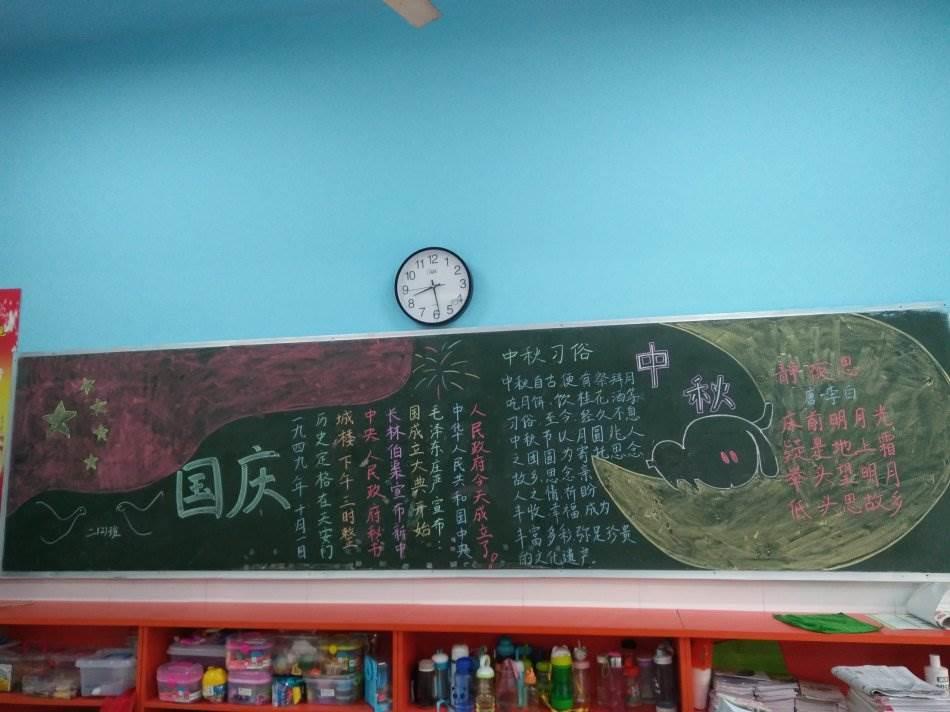 12 1 2 3 4 5 6 7 8 9 10 11
国庆
二(2)班
一九四九年十月一日
历史定格在天安门
城楼,下午三时整
中央人民政府秘书
长林伯渠宣布新中
国成立大典开始
毛泽东庄严宣布:
中华人民共和国中央
人民政府今天成立了。
中秋习俗
中秋自古便有祭拜月
吃月饼、饮桂花酒等
习俗,至今经久不息
中秋节以月圆兆人
之团圆,为寄托思念
故乡,思念亲
人之情,祈盼
丰收幸福,成为
丰富多彩弥足珍贵
的文化遗产.
中秋
静夜思
唐李白
床前明月光
疑是地上霜
举头望明月
低头思故乡